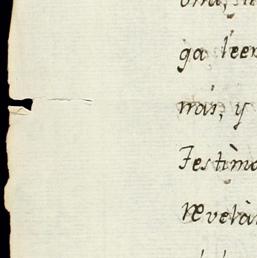 ga leer
mas, y
Testimo
Revela